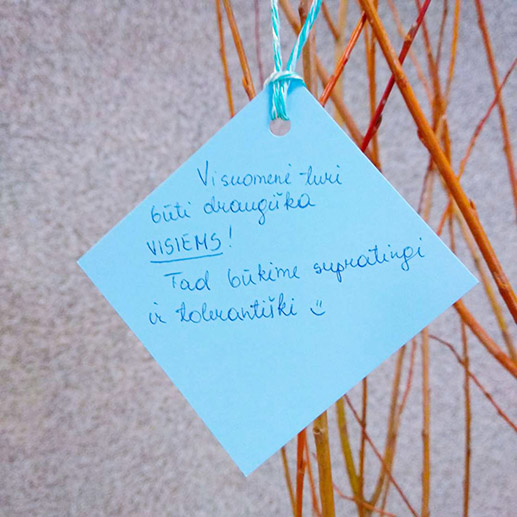 Visuomenė turi
būti draugiška
VISIEMS!
Tad būkime supratingi
ir tolerantiški :)